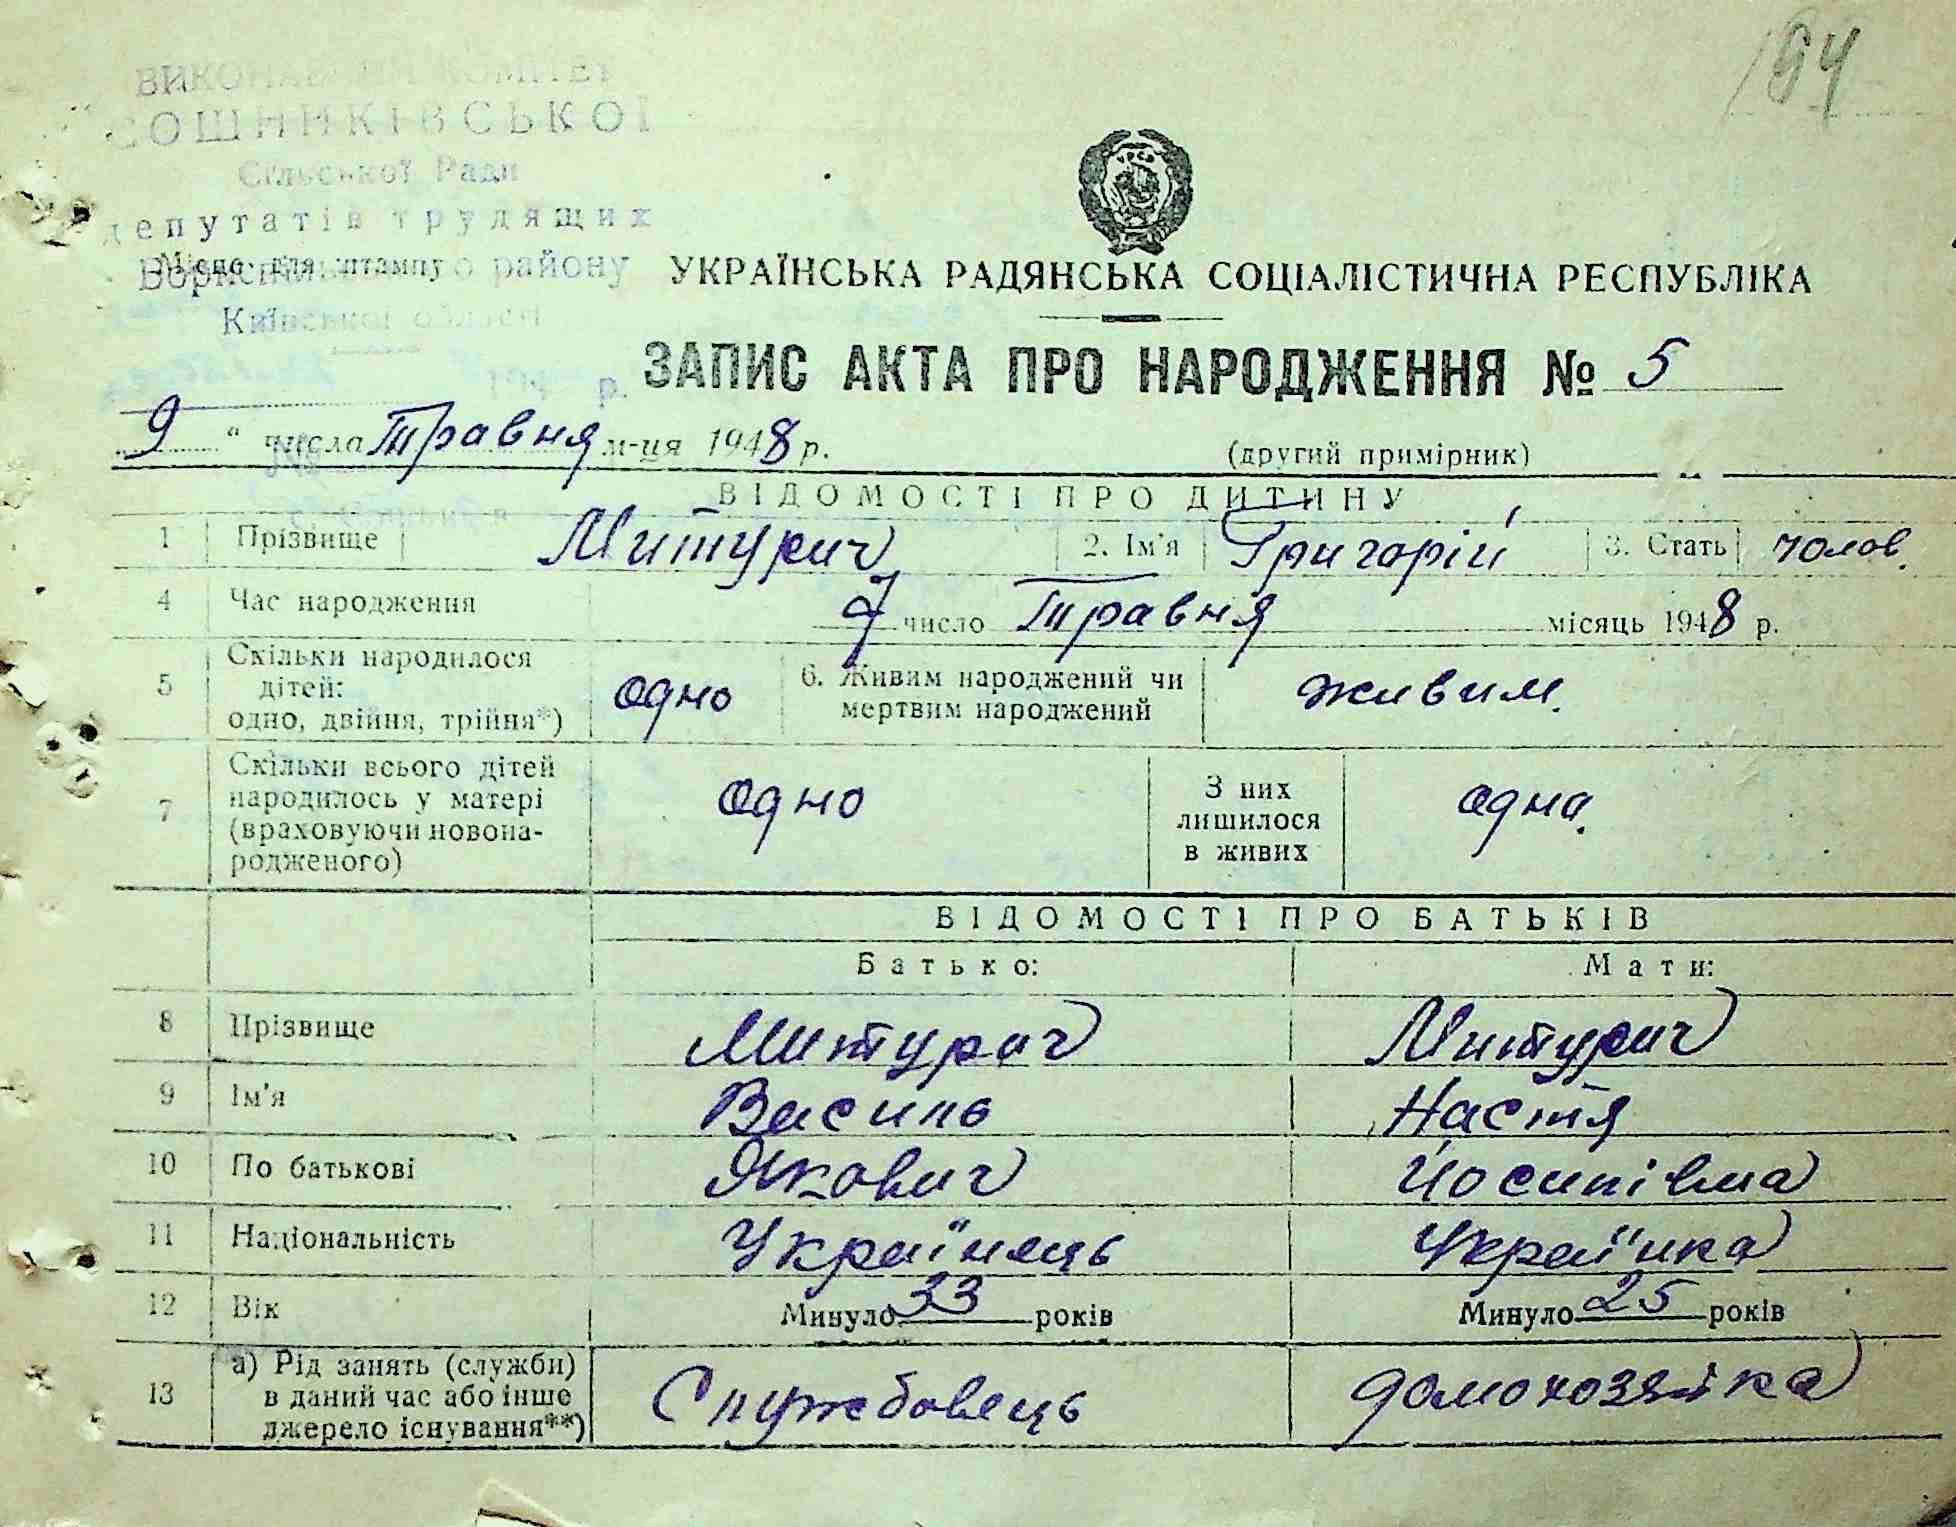 194
ВИКОНАВЧИЙ КОМІТЕТ
СОШНИКІВСЬКОЇ
Сільської Ради
депутатів трудящих
Місце для штампу
району
Київської області
194 р.
УРСР
УКРАЇНСЬКА РАДЯНСЬКА СОЦІАЛІСТИЧНА РЕСПУБЛІКА
ЗАПИС АКТА ПРО НАРОДЖЕННЯ № 5
9 " числа Травня м-ця 1948 р.
(другий примірник)
ВІДОМОСТІ ПРО ДИТИНУ
1 Прізвище Митурич 2. Ім'я Григорій 3. Стать чолов.
4 Час народження 7 число Травня місяць 1948 р.
5 Скільки народилося дітей: одно, двійня, трійня*) одно 6. Живим народжений чи мертвим народжений живим.
7 Скільки всього дітей народилось у матері (враховуючи новонародженого) одно З них лишилося в живих одна.
ВІДОМОСТІ ПРО БАТЬКІВ
Батько: Мати:
8 Прізвище Митурич Митурич
9 Ім'я Василь Настя
10 По батькові Якович Йосипівна
11 Національність Українець Українка
12 Вік Минуло 33 років Минуло 25 років
13 а) Рід занять (служби) в даний час або інше джерело існування**) Службовець домохозяйка